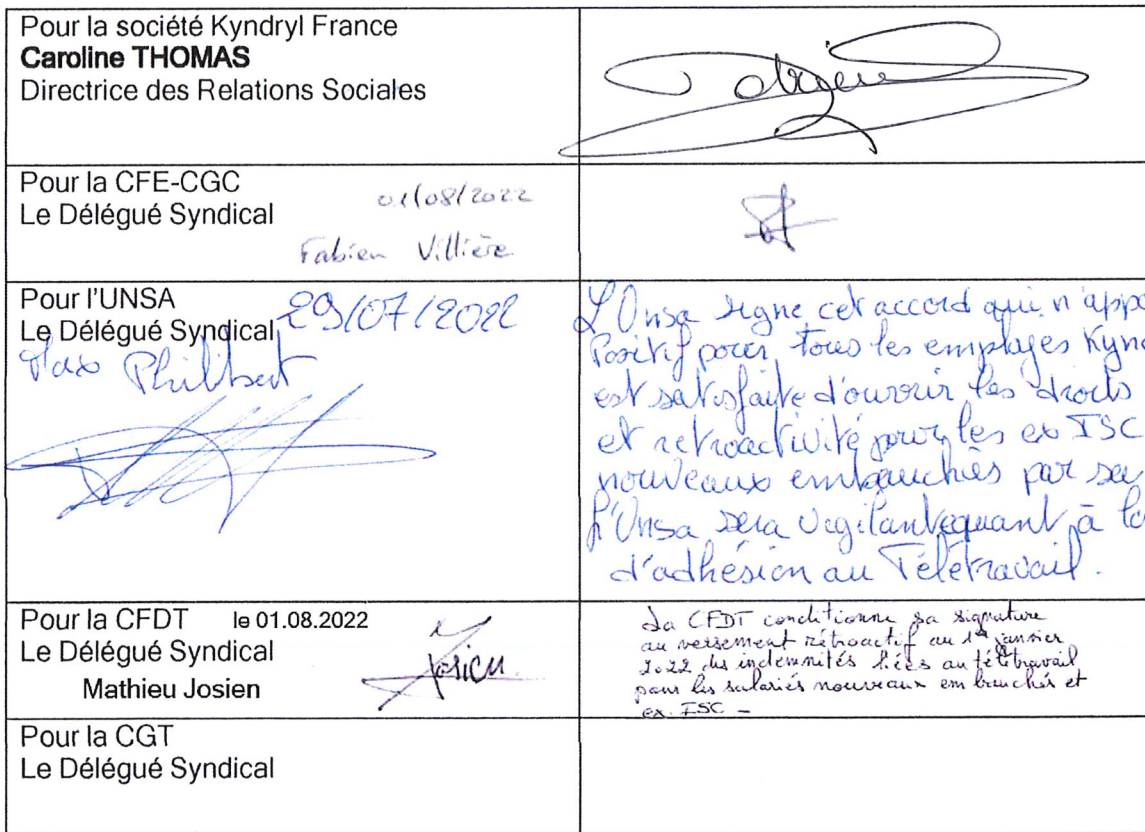 Pour la société Kyndryl France
Caroline THOMAS
Directrice des Relations Sociales
Pour la CFE-CGC
Le Délégué Syndical
01/08/2022
Fabien Villière
Pour l'UNSA
Le Délégué Syndical
29/07/2022
Max Philibert
L'Unsa signe cet accord qui n'appo
Positif pour tous les employés Kynd
est satisfaite d'ouvrir les droits
et retroactivité pour les ex ISC
nouveaux embauchés par sa
L'Unsa sera vigilante quant à la
d'adhésion au Télétravail.
Pour la CFDT le 01.08.2022
Le Délégué Syndical
Mathieu Josien
Josien
La CFDT conditionne sa signature
au versement rétroactif au 1er janvier
2022 des indemnités liées au télétravail
pour les salariés nouveaux embauchés et
ex. ISC -
Pour la CGT
Le Délégué Syndical